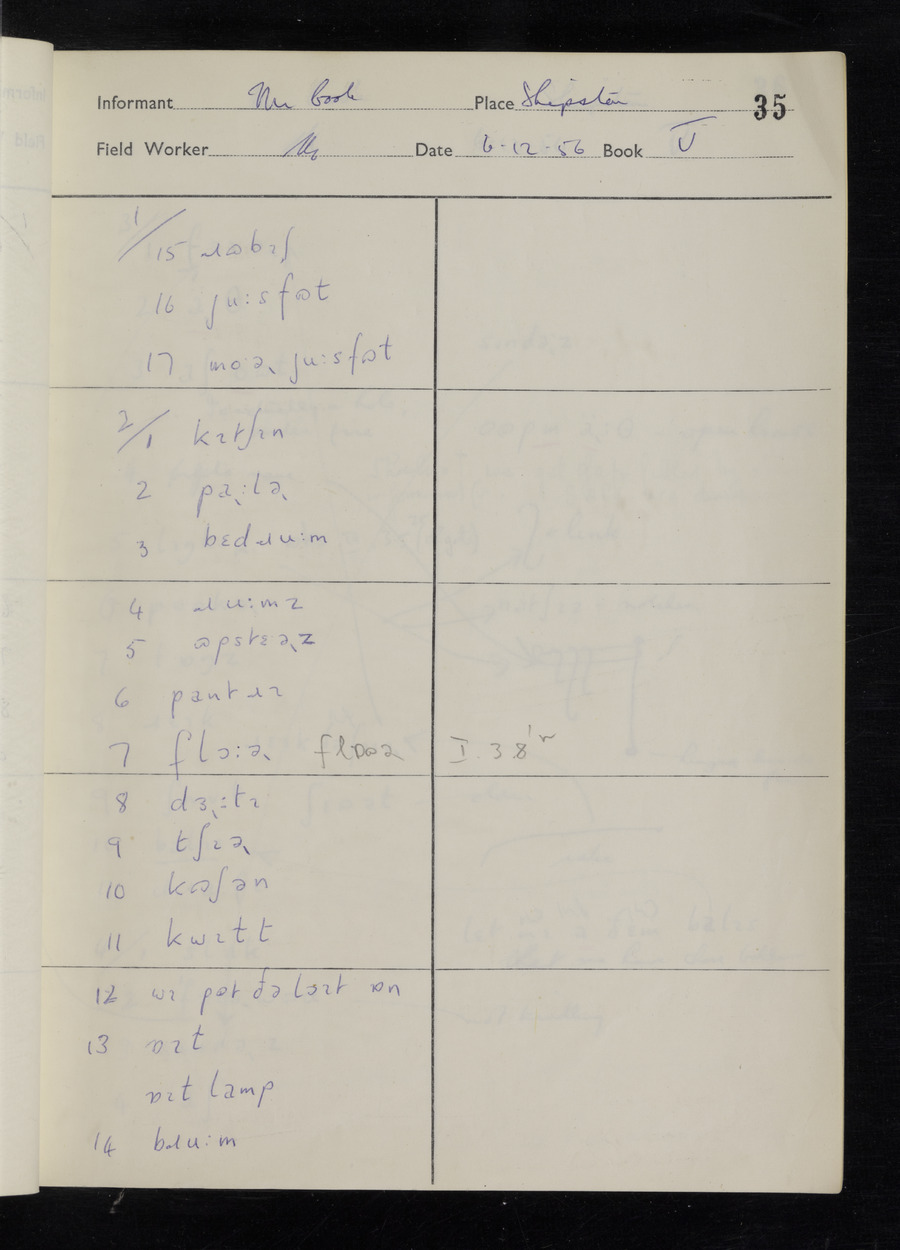 Informant Mr Cook Place Shipston 35
Field Worker Date 6·12·56 Book V
1/15 ɹɷbɪʃ
16 ju:sfɷt
17 moə˞ ju:sfɷt
2/1 kɪtʃɪn
2 pa˞:lə˞
3 bɛdɹu:m
4 ɹu:mz
5 ɷpstɛə˞z
6 pantɹɪ
7 flɔ:ə˞ flɒɷə I.3.8
8 dɜ˞:tɪ
9 tʃɪə˞
10 kɷʃən
11 kwɪɫt
12 wɪ pɷt ðə lɒɪt ɒn
13 ɒɪt
ɒɪt lamp
14 bɹu:m